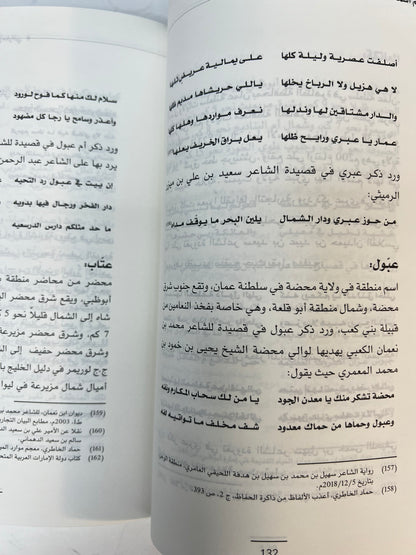 أسلفت عصرية وليلة كلها    على يمالية عريض
لا هي هزيل ولا الرياخ يخلها    ياللي حريشاها مديم
والدار مشتاقين لها وندلها    نعرف مواردها وهلها
عمار يا عبري ورايح ظلها    يعل براق الخريف يعلها
ورد ذكر عبري في قصيدة الشاعر سعيد بن علي بن
الرميثي:
من حوز عبري ودار الشمال    يلين البحر ما يوقف
عبول:
اسم منطقة في ولاية محضة في سلطنة عمان، وتقع جنوب شرق
محضة، وشمال منطقة أبو قلعة، وهي خاصة بفخذ النعامين من
قبيلة بني كعب، ورد ذكر عبول في قصيدة للشاعر محمد بن
نعمان الكعبي يهديها لوالي محضة الشيخ يحيى بن حمود بن
محمد المعمري حيث يقول:
محضة تشكر منك يا معدن الجود    يا من لك سحاب المكارم وفيه
وعبول وحماها من حماك معدود    شف مخلف ما تواتيه لفه
(157) رواية الشاعر سهيل بن محمد بن سهيل بن هدفة اللحيفي العامري، منطقة الرماح
بتاريخ 2018/12/5م.
(158) حماد الخاطري، أعذب الألفاظ من ذاكرة الحفاظ، ج 2، ص 393.
132
سلام لك منها كما فوح لورود
وأعذر وسامح يا رجا كل مضهود
ورد ذكر أم عبول في قصيدة الشاعر
يرد بها على الشاعر عبد الرحمن
إن ييت في عبول رد التحيه
دار الفخر ورجال فيها بدويه
ما حد مثلكم دارس الدرسعيه
عتاب:
محضر من محاضر
أبوظبي، ويقع شرق محضر
شاه إلى الشمال قليلاً نحو 5
7 كم، وشرق محضر
وشرق محضر حفيف إلى
ج.ج لوريمر في دليل الخليج
أميال شمال مزيرعة في ليوا
(159) ديوان ابن نعمان، للشاعر محمد بن
ط1، 2003م، مطابع البيان التجارية
(160) نقلا عن الأمير علي بن سعيد
سالم بن سعيد الدهماني.
(161) حماد الخاطري، معجم موارد
(162) كتاب دولة الإمارات العربية المتحدة